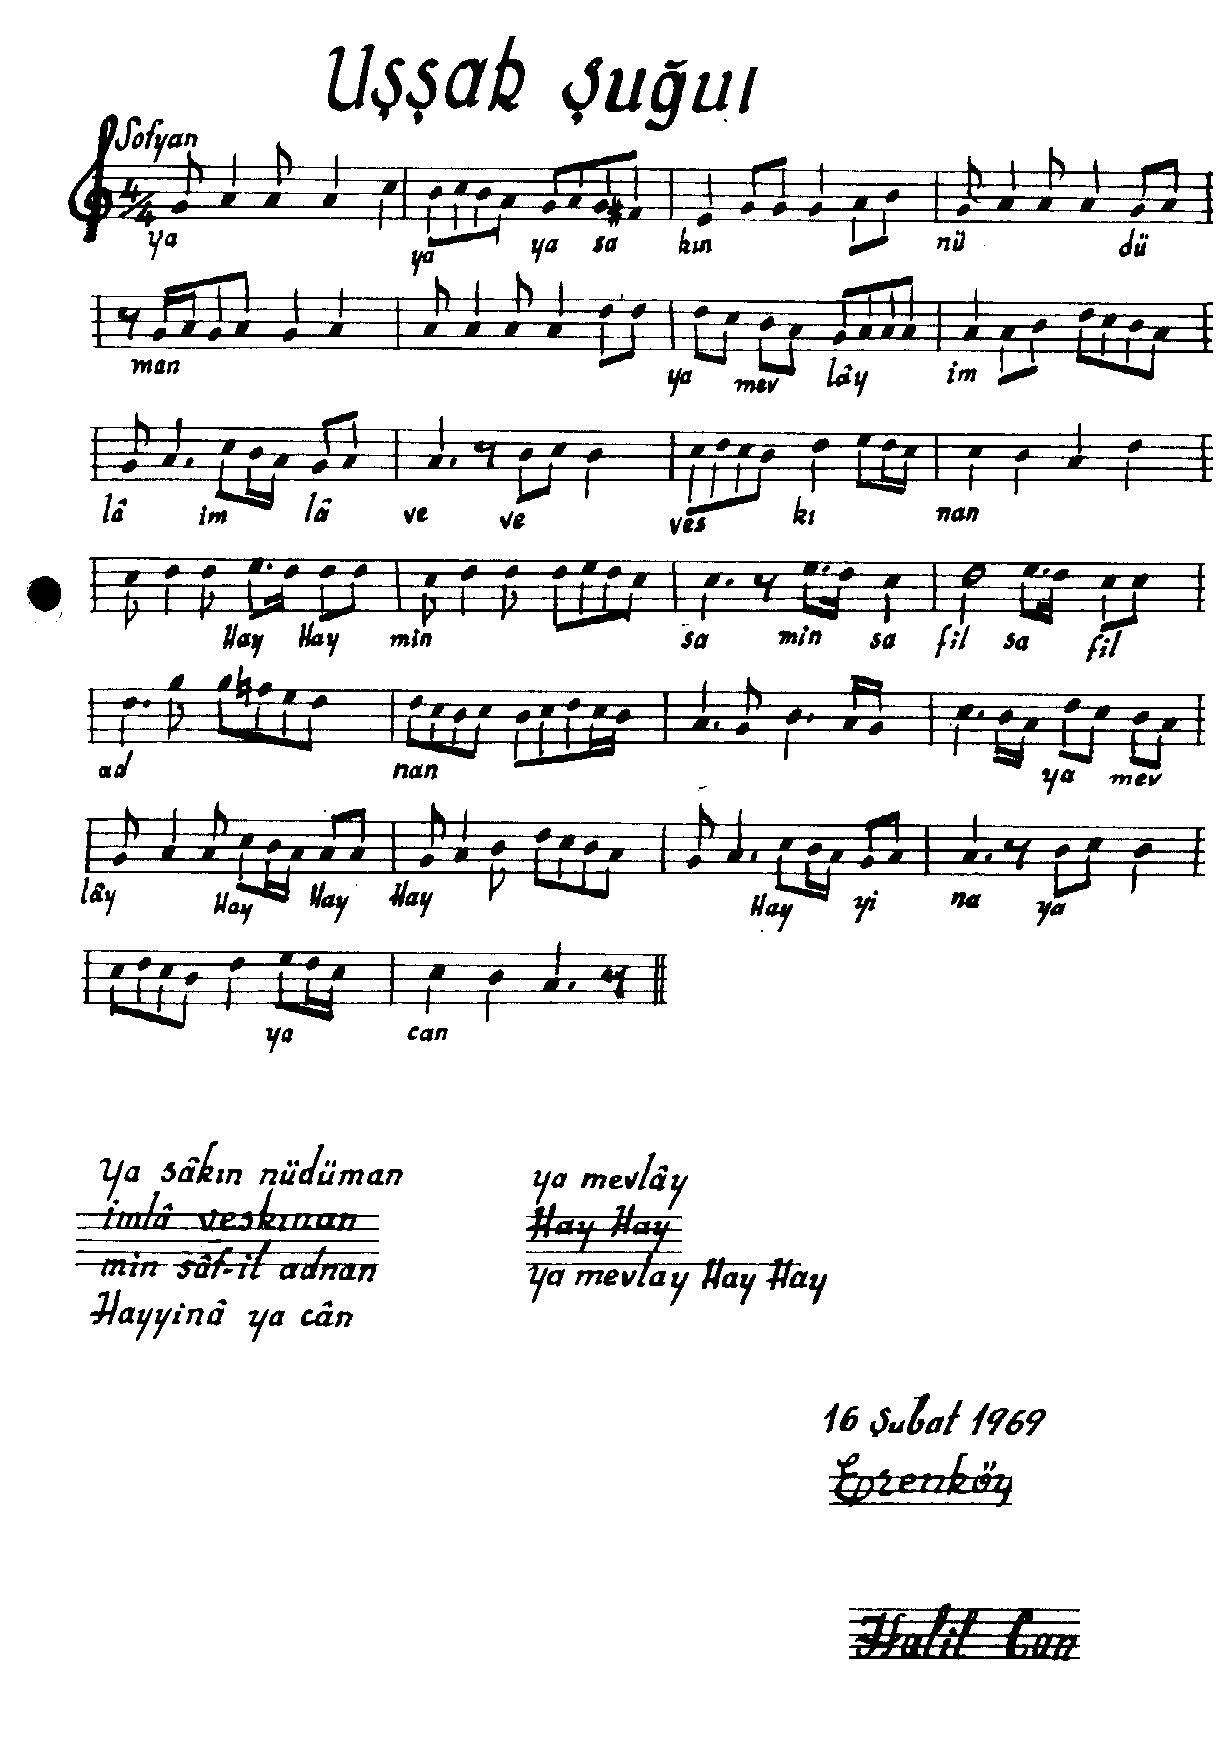 Uşşak Şuğul
Sofyan
4/4
ya ya ya sa kın nü dü
man ya mev lây im
lâ im lâ ve ve ves kı nan
Hay Hay min sa min sa fil sa fil
ad nan ya mev
lây Hay Hay Hay Hay yi na ya
ya can
Ya sâkın nüdüman
imlâ veskınan
min sâf-il adnan
Hayyinâ ya cân
ya mevlây
Hay Hay
ya mevlay Hay Hay
16 Şubat 1969
Erenköy
Halil Can